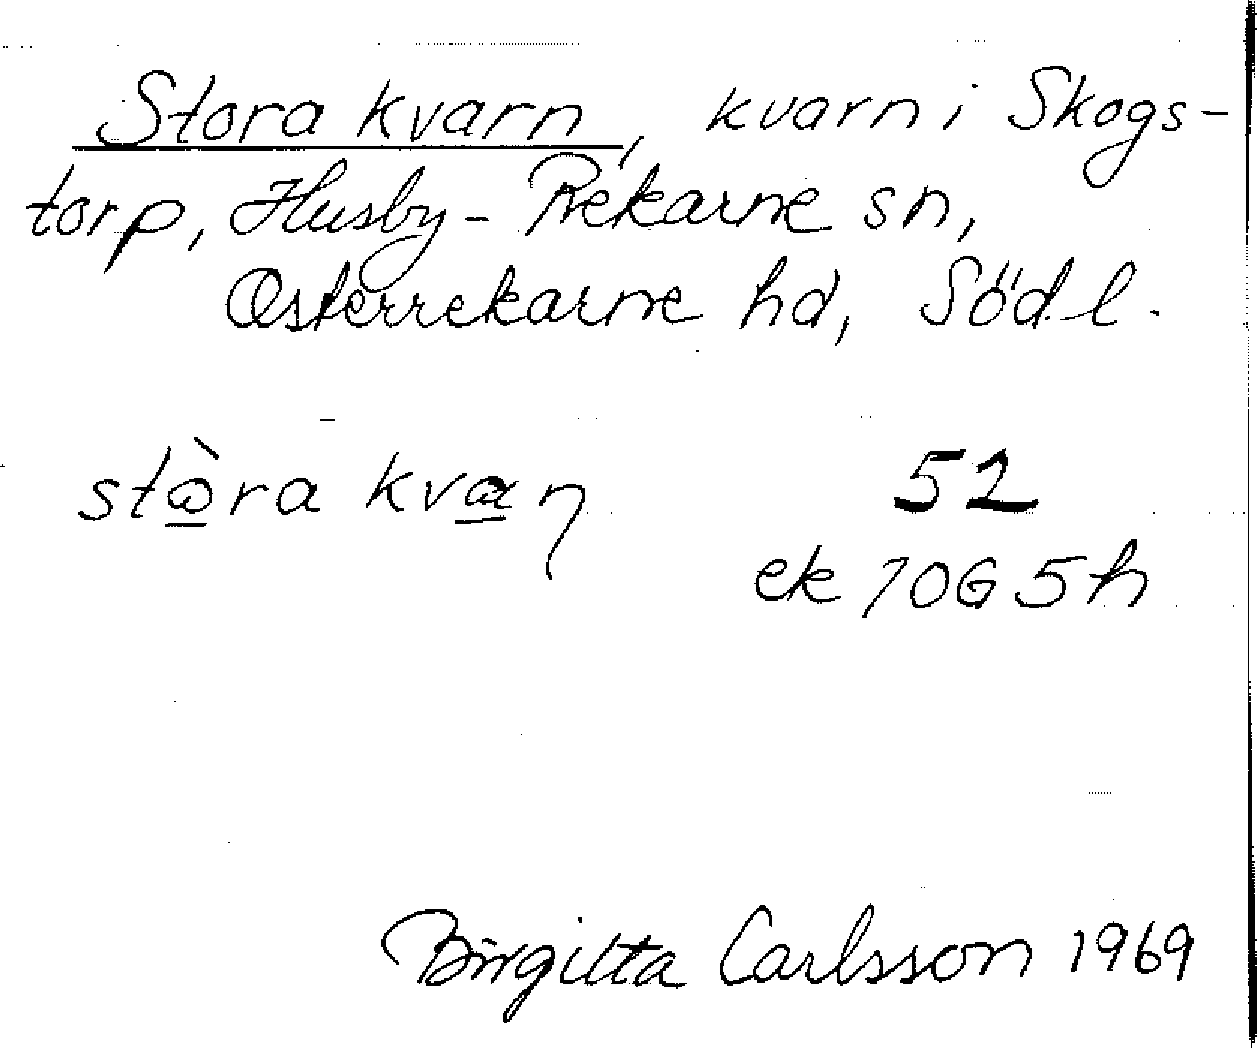 Stora kvarn, kvarn i Skogs-
torp, Husby-Rekarne sn,
Österrekarne hd, Södl.
52
ek 10G 5h
Birgitta Carlsson 1969